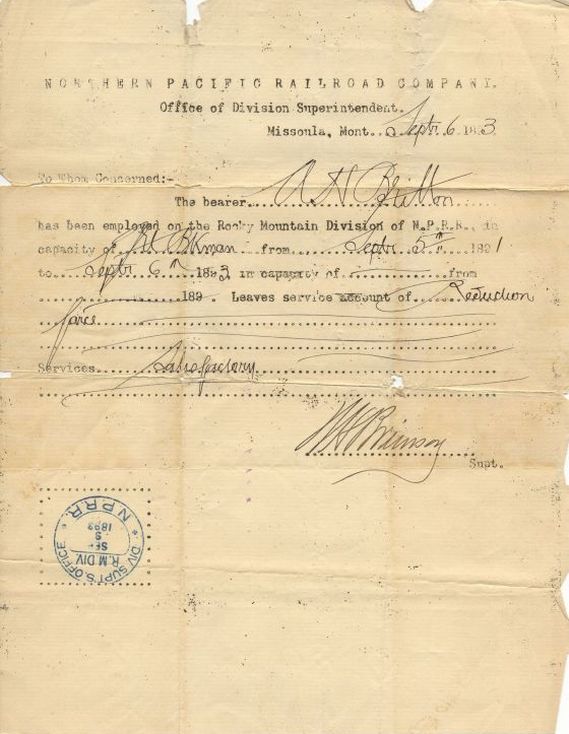 NORTHERN PACIFIC RAILROAD COMPANY.
Office of Division Superintendent.
Missoula, Mont. Septr. 6 1893
To Whom Concerned:-
The bearer A H Britton
has been employed on the Rocky Mountain Division of N.P.R.R., in
capacity of Frt Bkman from Septr. 5th 1891
to Septr 6th 1893 in capacity of from
189 . Leaves service account of Reduction
force
Services Satisfactory
Supt.
DIV. SUPT'S. OFFICE
R.M DIV.
1893
N.P.R.R.